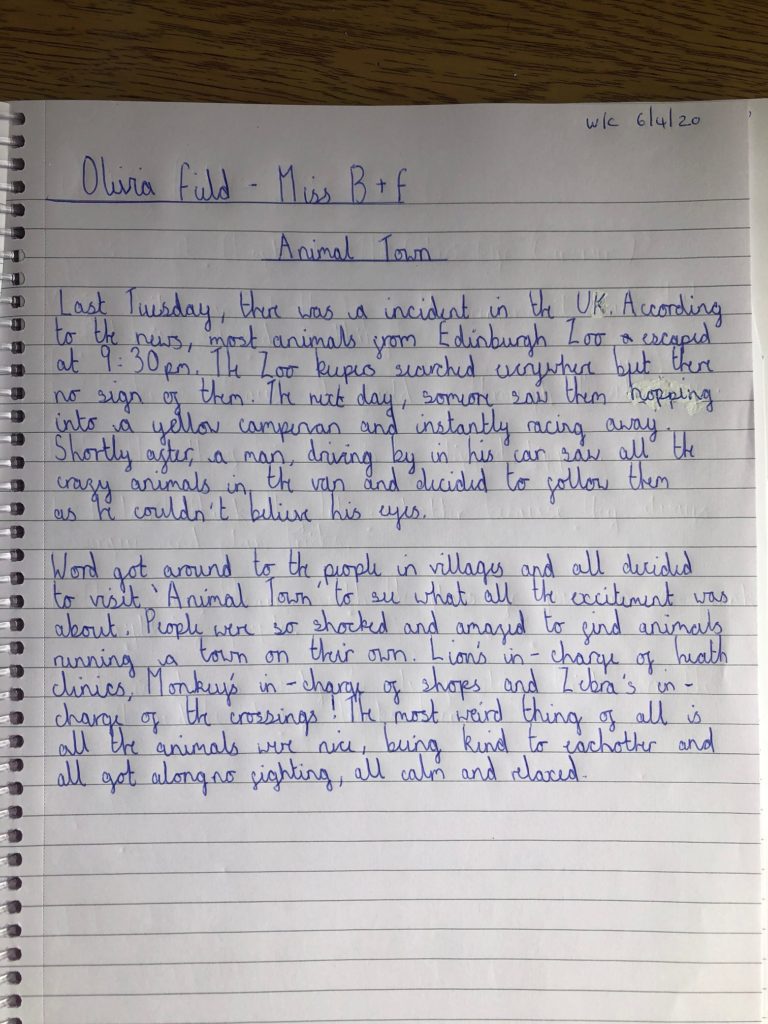 w/c 6/4/20
Olivia Field - Miss B + F
Animal Town
Last Tuesday, there was a incident in the UK. According
to the news, most animals from Edinburgh Zoo escaped
at 9:30pm. The Zoo keepers searched everywhere but there
no sign of them. The next day, someone saw them hopping
into a yellow campervan and instantly racing away.
Shortly after, a man, driving by in his car saw all the
crazy animals in the van and decided to follow them
as he couldn't believe his eyes.
Word got around to the people in villages and all decided
to visit 'Animal Town' to see what all the excitement was
about. People were so shocked and amazed to find animals
running a town on their own. Lion's in-charge of heath
clinics, Monkey's in-charge of shops and Zebra's in-
charge of the crossings! The most weird thing of all is
all the animals were nice, being kind to eachother and
all got along no fighting, all calm and relaxed.